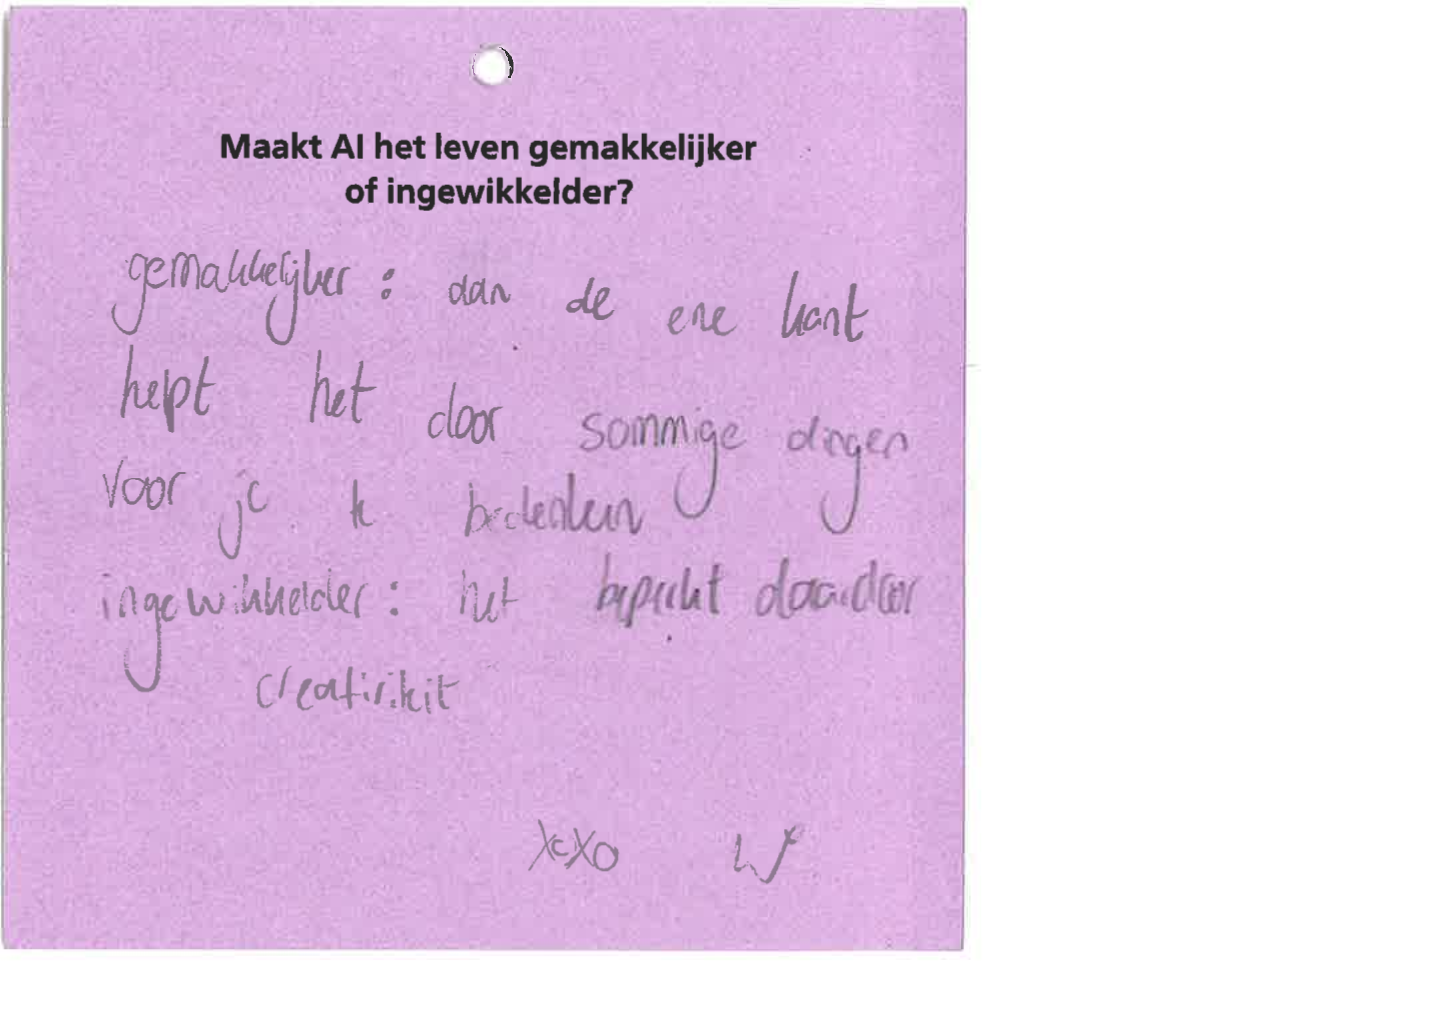 Maakt AI het leven gemakkelijker
of ingewikkelder?
gemakkelijker : aan de ene kant
helpt het door sommige dingen
voor je te bedenken
ingewikkelder : het beperkt daardoor
creativiteit
xoxo